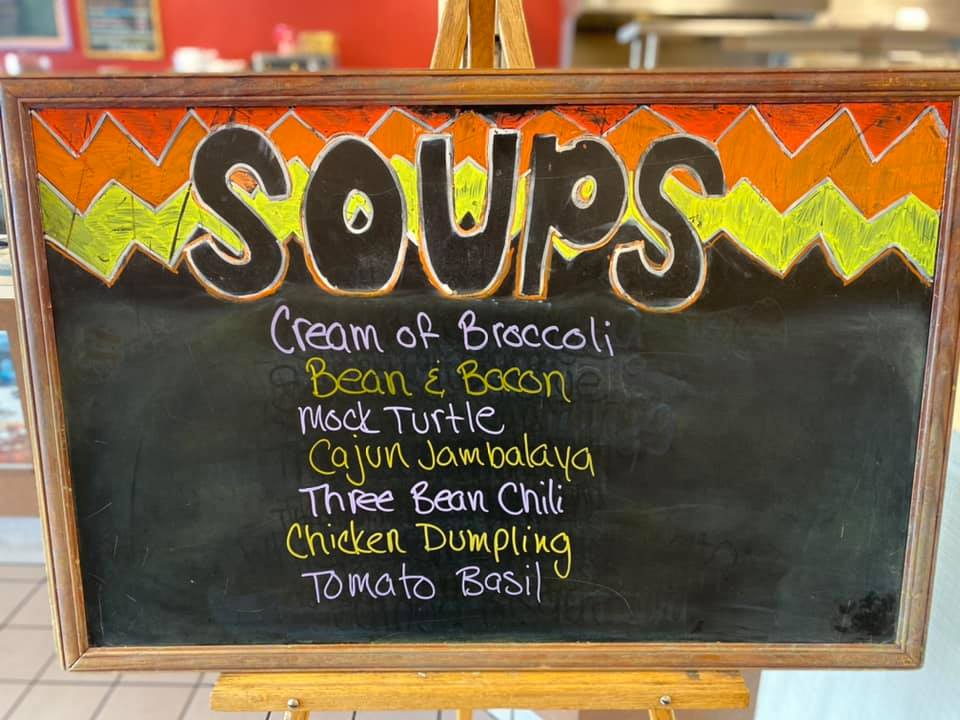 SOUPS
Cream of Broccoli
Bean & Bacon
Mock Turtle
Cajun Jambalaya
Three Bean Chili
Chicken Dumpling
Tomato Basil